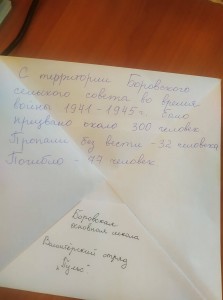 С территории Боровского
сельского совета во время
войны 1941-1945г. было
призвано около 300 человек
Пропали без вести - 32 человека
Погибло - 47 человек
Боровская
основная школа
Волонтёрский отряд
"Пульс"